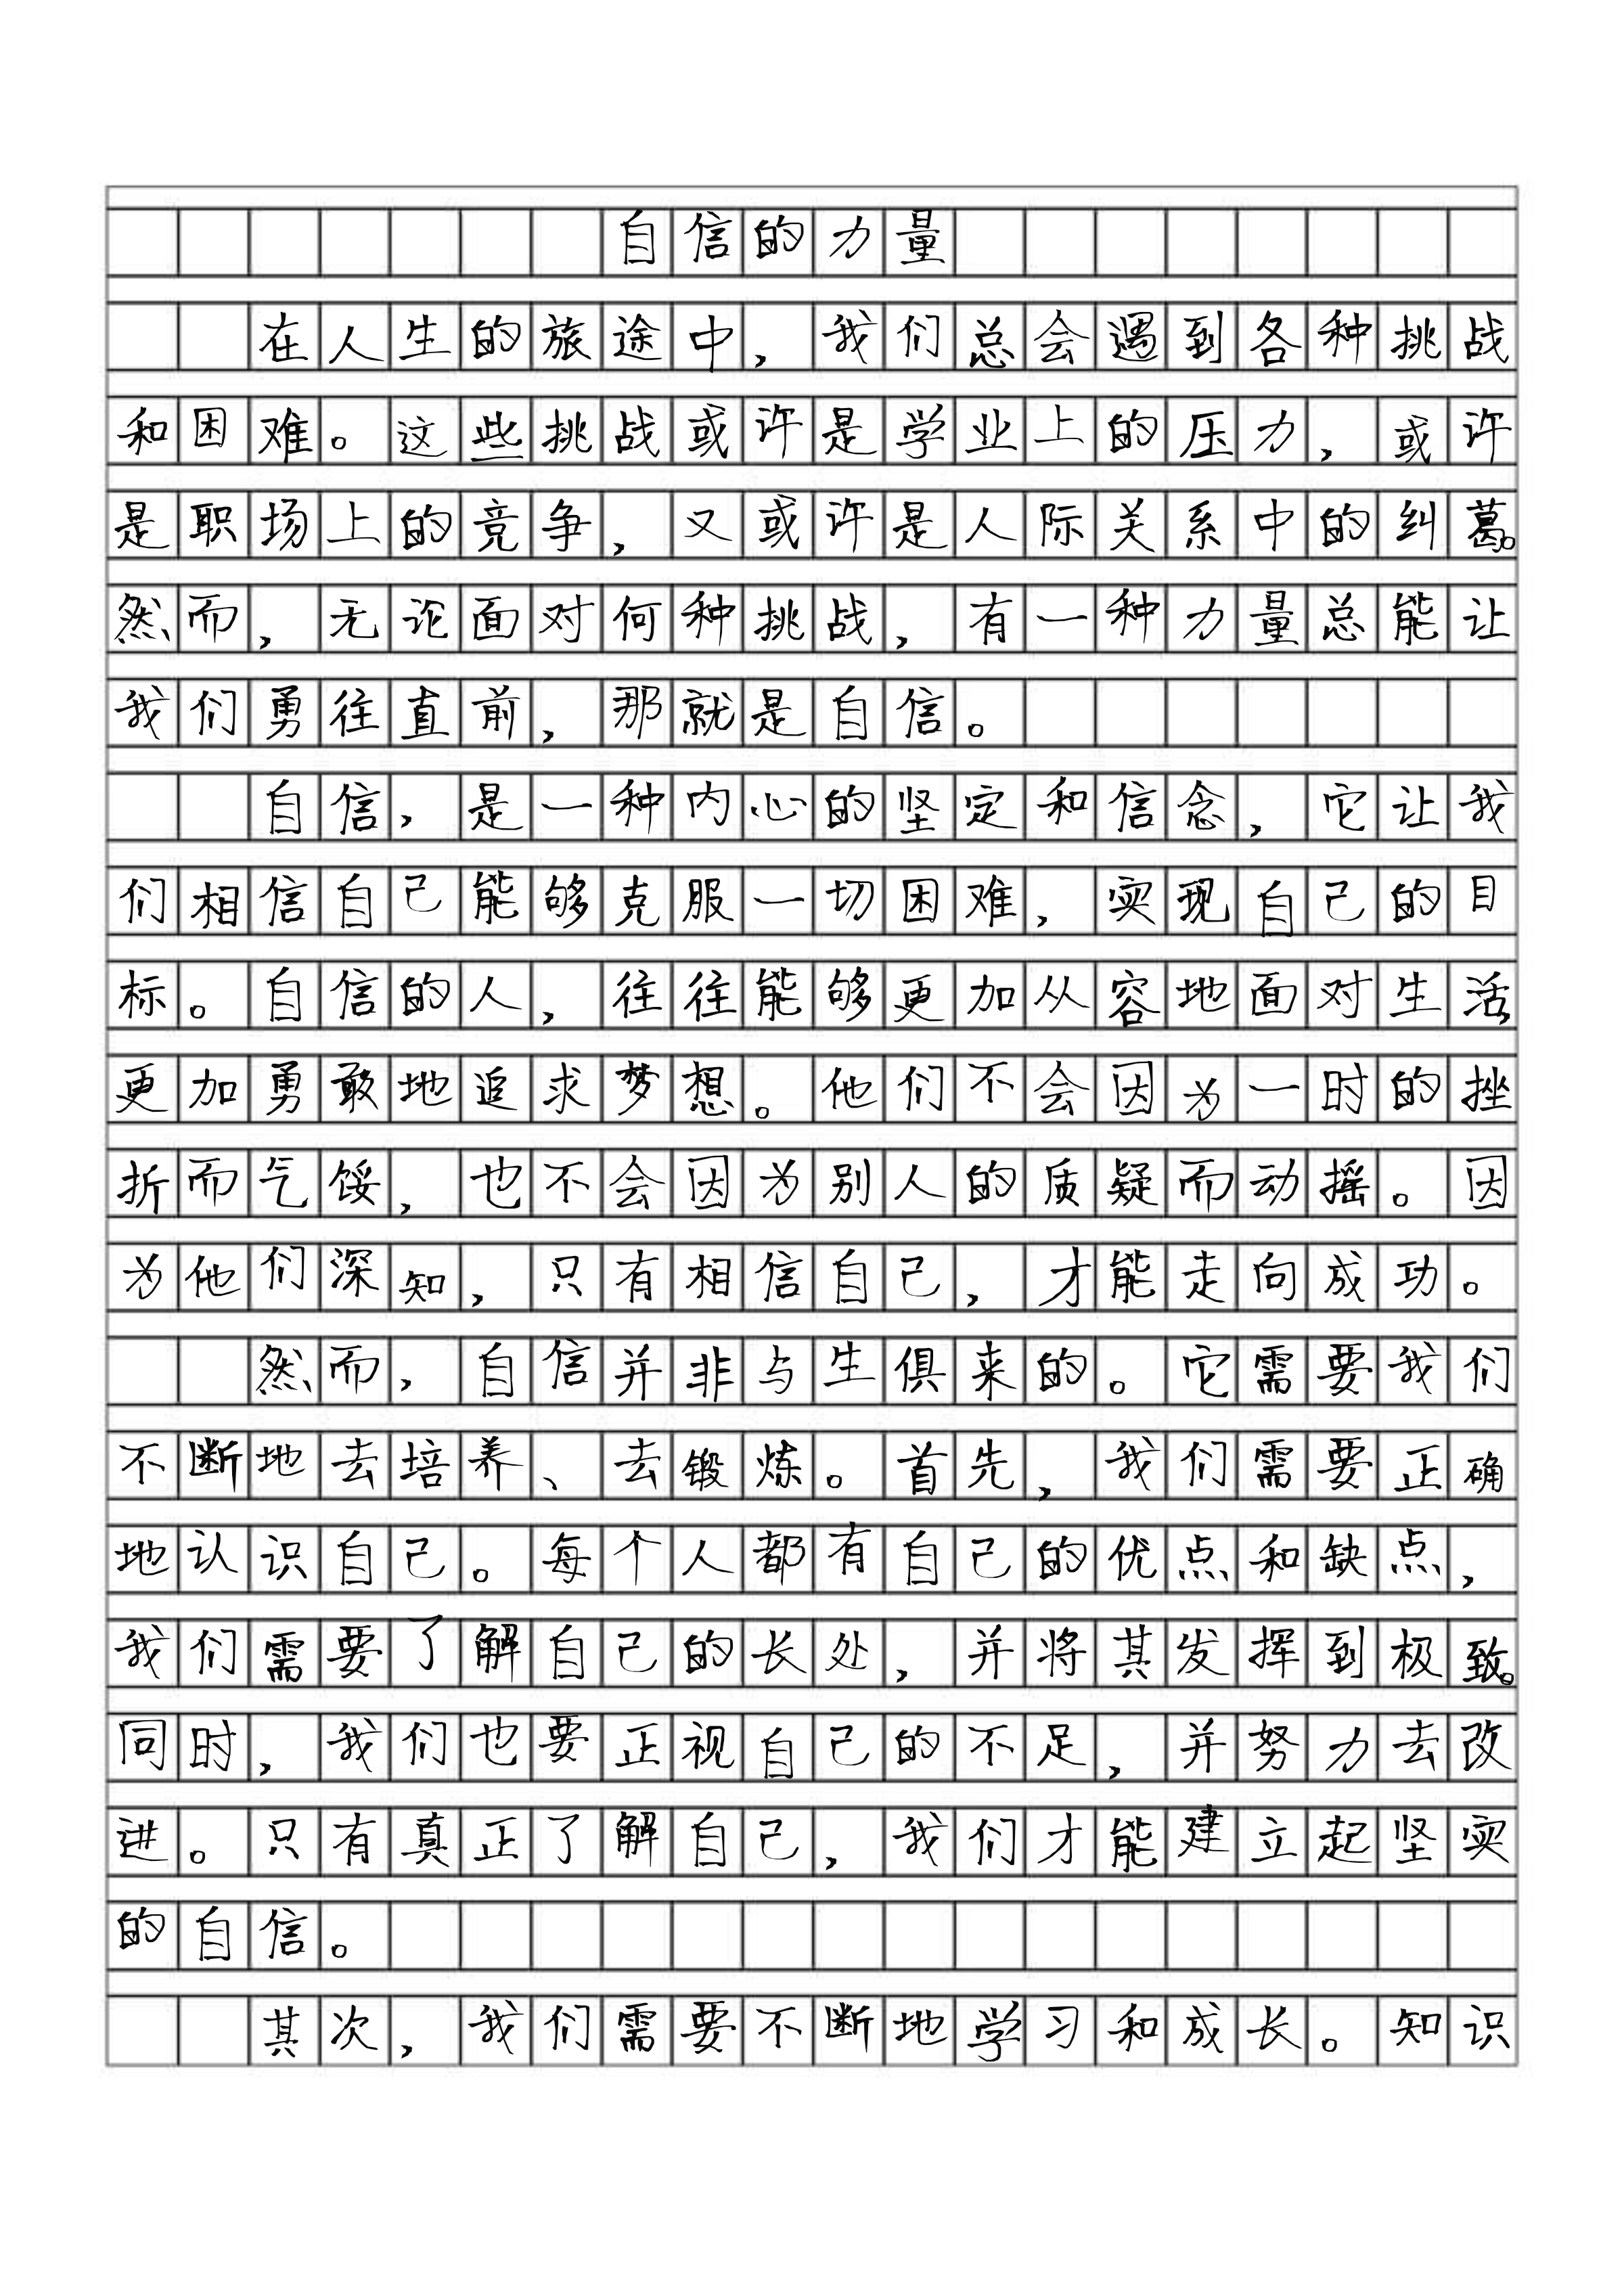 自信的力量
在人生的旅途中，我们总会遇到各种挑战
和困难。这些挑战或许是学业上的压力，或许
是职场上的竞争，又或许是人际关系中的纠葛。
然而，无论面对何种挑战，有一种力量总能让
我们勇往直前，那就是自信。
自信，是一种内心的坚定和信念，它让我
们相信自己能够克服一切困难，实现自己的目
标。自信的人，往往能够更加从容地面对生活，
更加勇敢地追求梦想。他们不会因为一时的挫
折而气馁，也不会因为别人的质疑而动摇。因
为他们深知，只有相信自己，才能走向成功。
然而，自信并非与生俱来的。它需要我们
不断地去培养、去锻炼。首先，我们需要正确
地认识自己。每个人都有自己的优点和缺点，
我们需要了解自己的长处，并将其发挥到极致。
同时，我们也要正视自己的不足，并努力去改
进。只有真正了解自己，我们才能建立起坚实
的自信。
其次，我们需要不断地学习和成长。知识